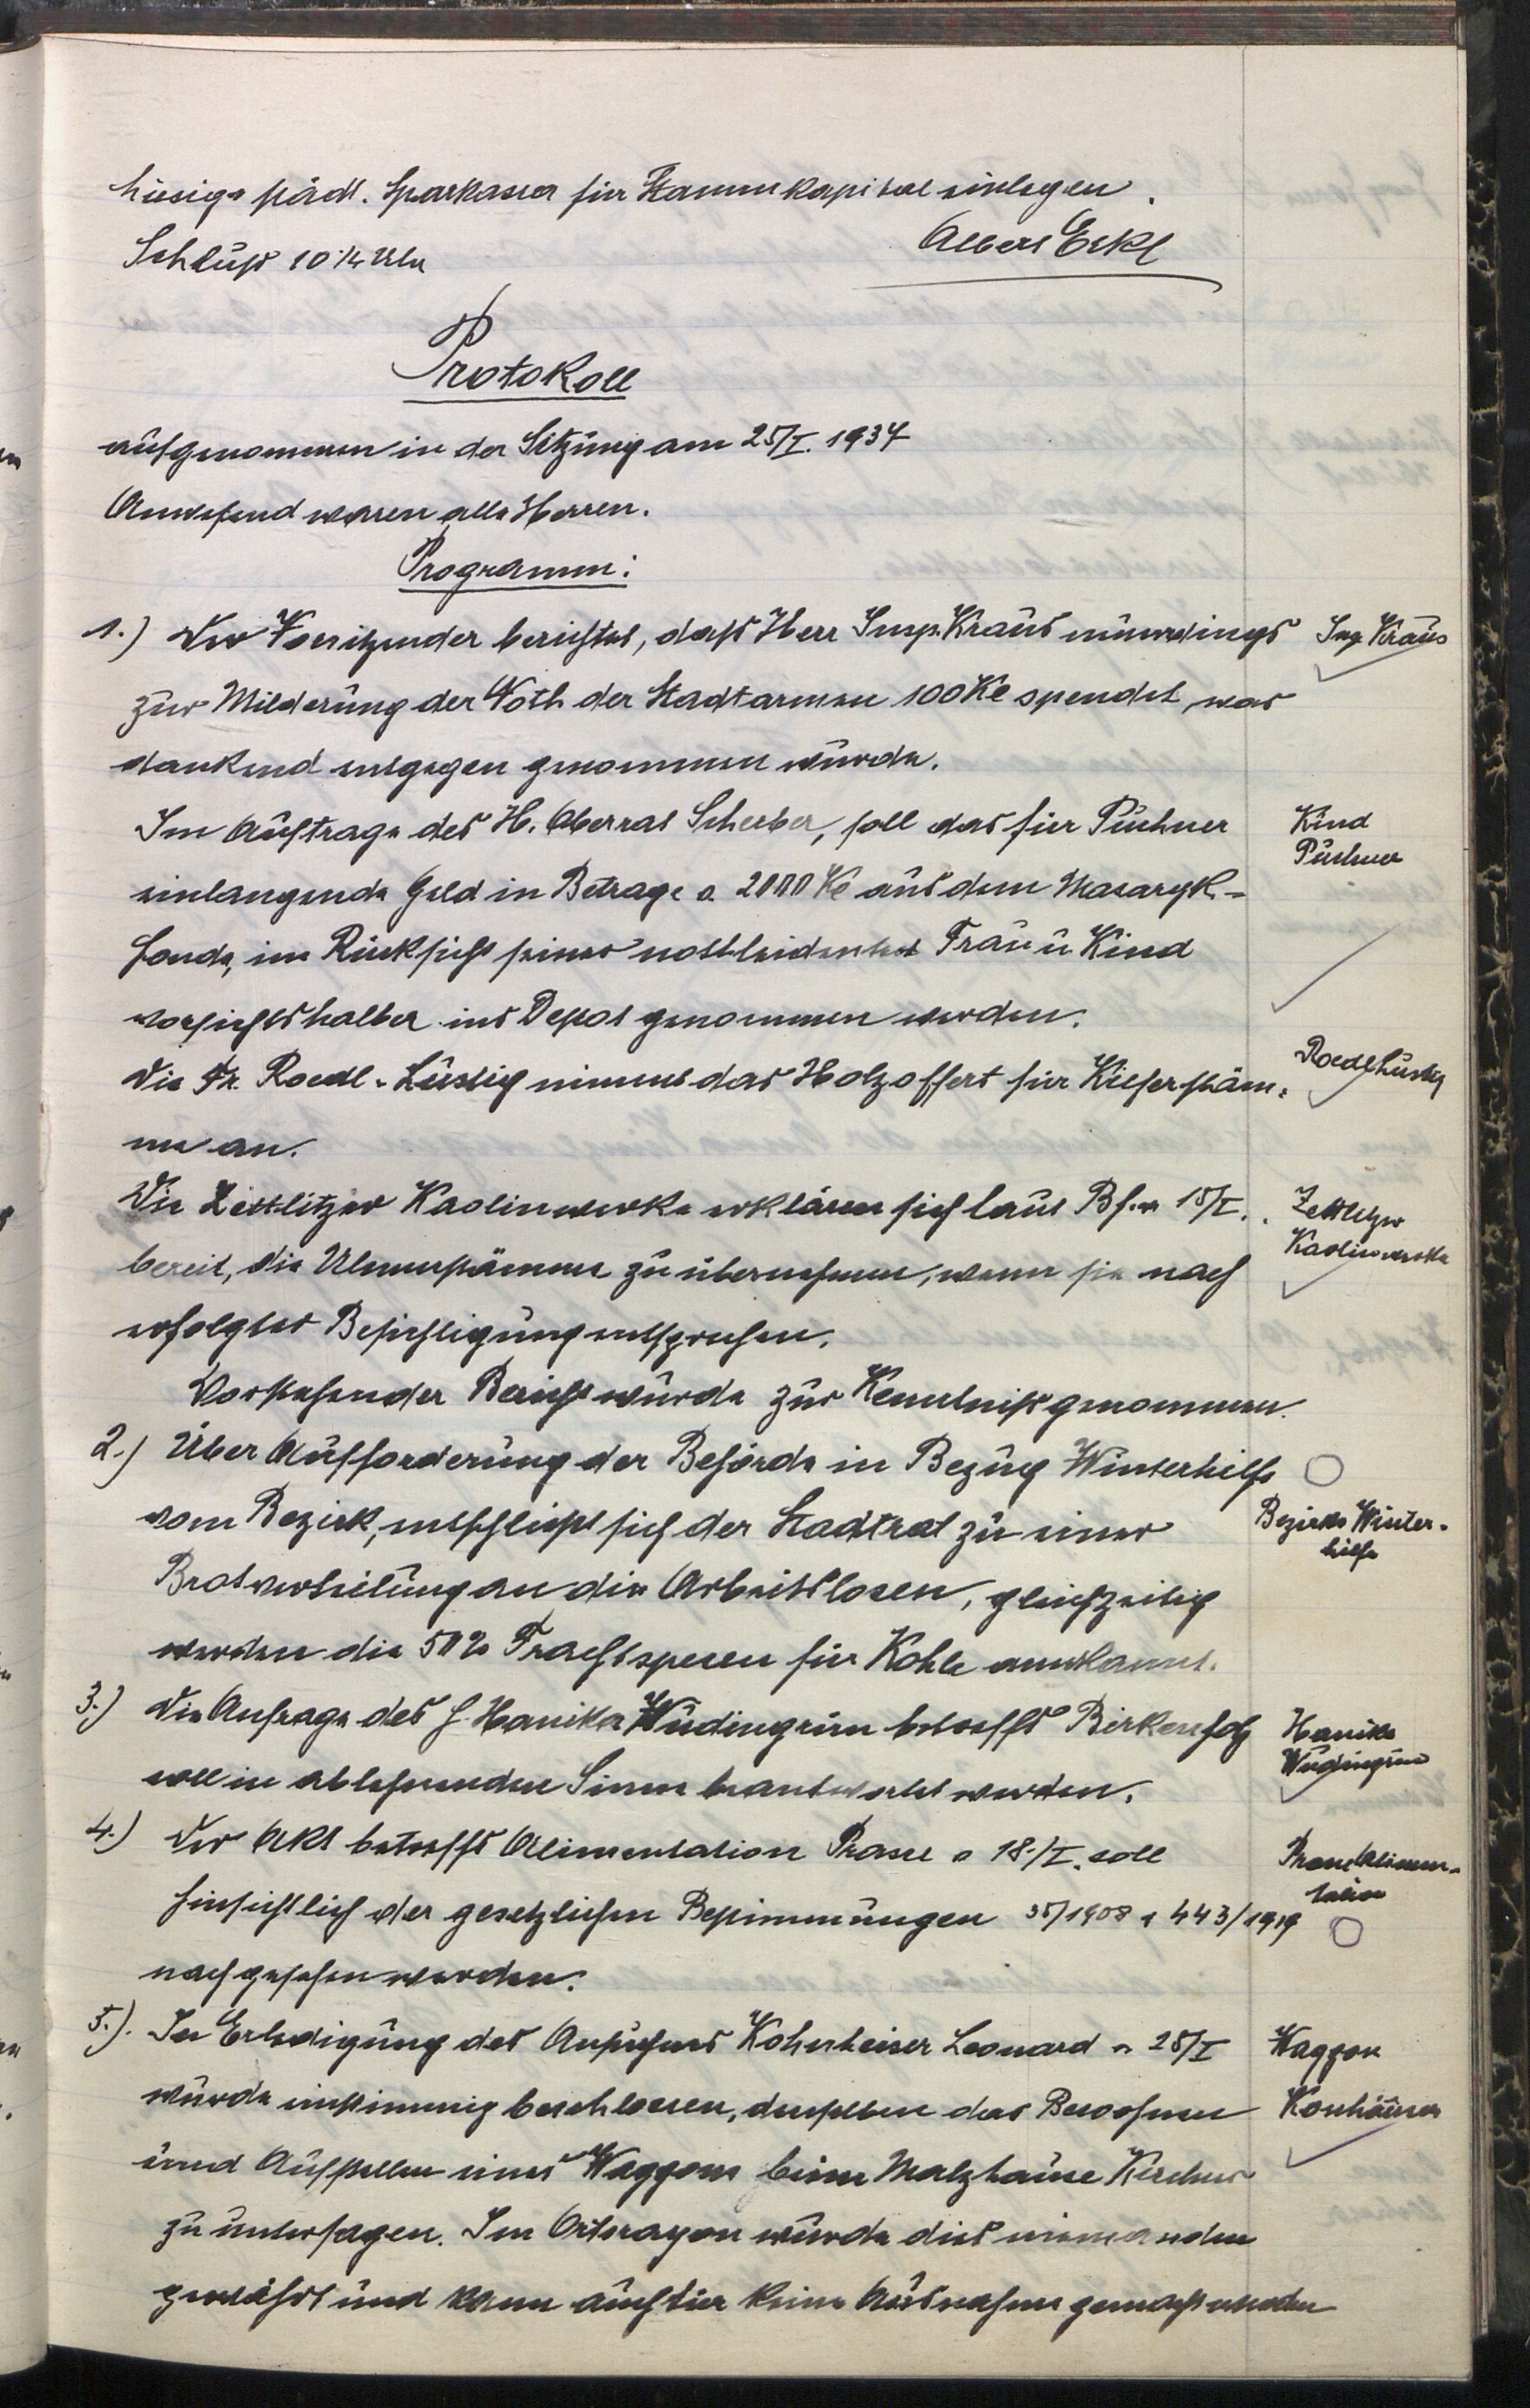 hiesige städt. Sparkassa für Stammkapital einlegen.
Schluss 10 ¼ Uhr
Albert Eckl
Protokoll
aufgenommen in der Sitzung am 25/I. 1934
Anwesend waren alle Herren.
Programm:
1.) Der Vorsitzender berichtet, dass Herr Insp. Kraus neuerdings
Insp. Kraus
zur Milderung der Noth der Stadtarmen 100 Kč spendet, was
dankend entgegen genommen wurde.
Im Auftrage des H. Oberrat Scherber, soll das für Püchner
Kind
Püchner
einlangende Geld in Betrage a 2000 Kč aus dem Masaryk-
fonde, im Rücksicht seiner notleidenden Frau u Kind
vorsichtshalber ins Depot genommen werden.
Die Fr. Roedl-Lustig nimmt das Holzoffert für Kieferstäm-
Roedl Lustig
me an.
Die Zettlitzer Kaolinwerke erklären sich laut Bf. v. 15/I.
Zettlitzer
Kaolinwerke
bereit, die Ulmenstämme zu übernehmen, wenn sie nach
erfolgter Besichtigung entsprechen.
Vorstehender Bericht wurde zur Kenntniss genommen.
2.) Über Aufforderung der Behörde in Bezug Winterhilfe
vom Bezirk, entschliesst sich der Stadtrat zu einer
Bezirks Winter-
hilfe
Brotverteilung an die Arbeitslosen, gleichzeitig
werden die 50% Frachtspesen für Kohle anerkannt.
3.) Die Anfrage des J. Hanika Wudingrün betreffs Birkenholz
Hanika
Wudingrün
soll in ablehnenden Sinne beantwortet werden.
4.) Der Akt betreffs Alimentation Prasse v 18./I. soll
Alimen-
tation
hinsichtlich der gesetzlichen Bestimmungen 35/1908 u 443/1919
nachgesehen werden.
5.). In Erledigung des Ansuchens Kohnheiser Leonard v. 25/I
Waggon
wurde einstimmig beschlossen, denselben das Bewohnen
Konhäuser
und Aufstellen eines Waggons beim Malzhause Kerchner
zu untersagen. Im Ortsrayon wurde dies niemanden
gewährt und kann auch hier keine Ausnahme gemacht werden